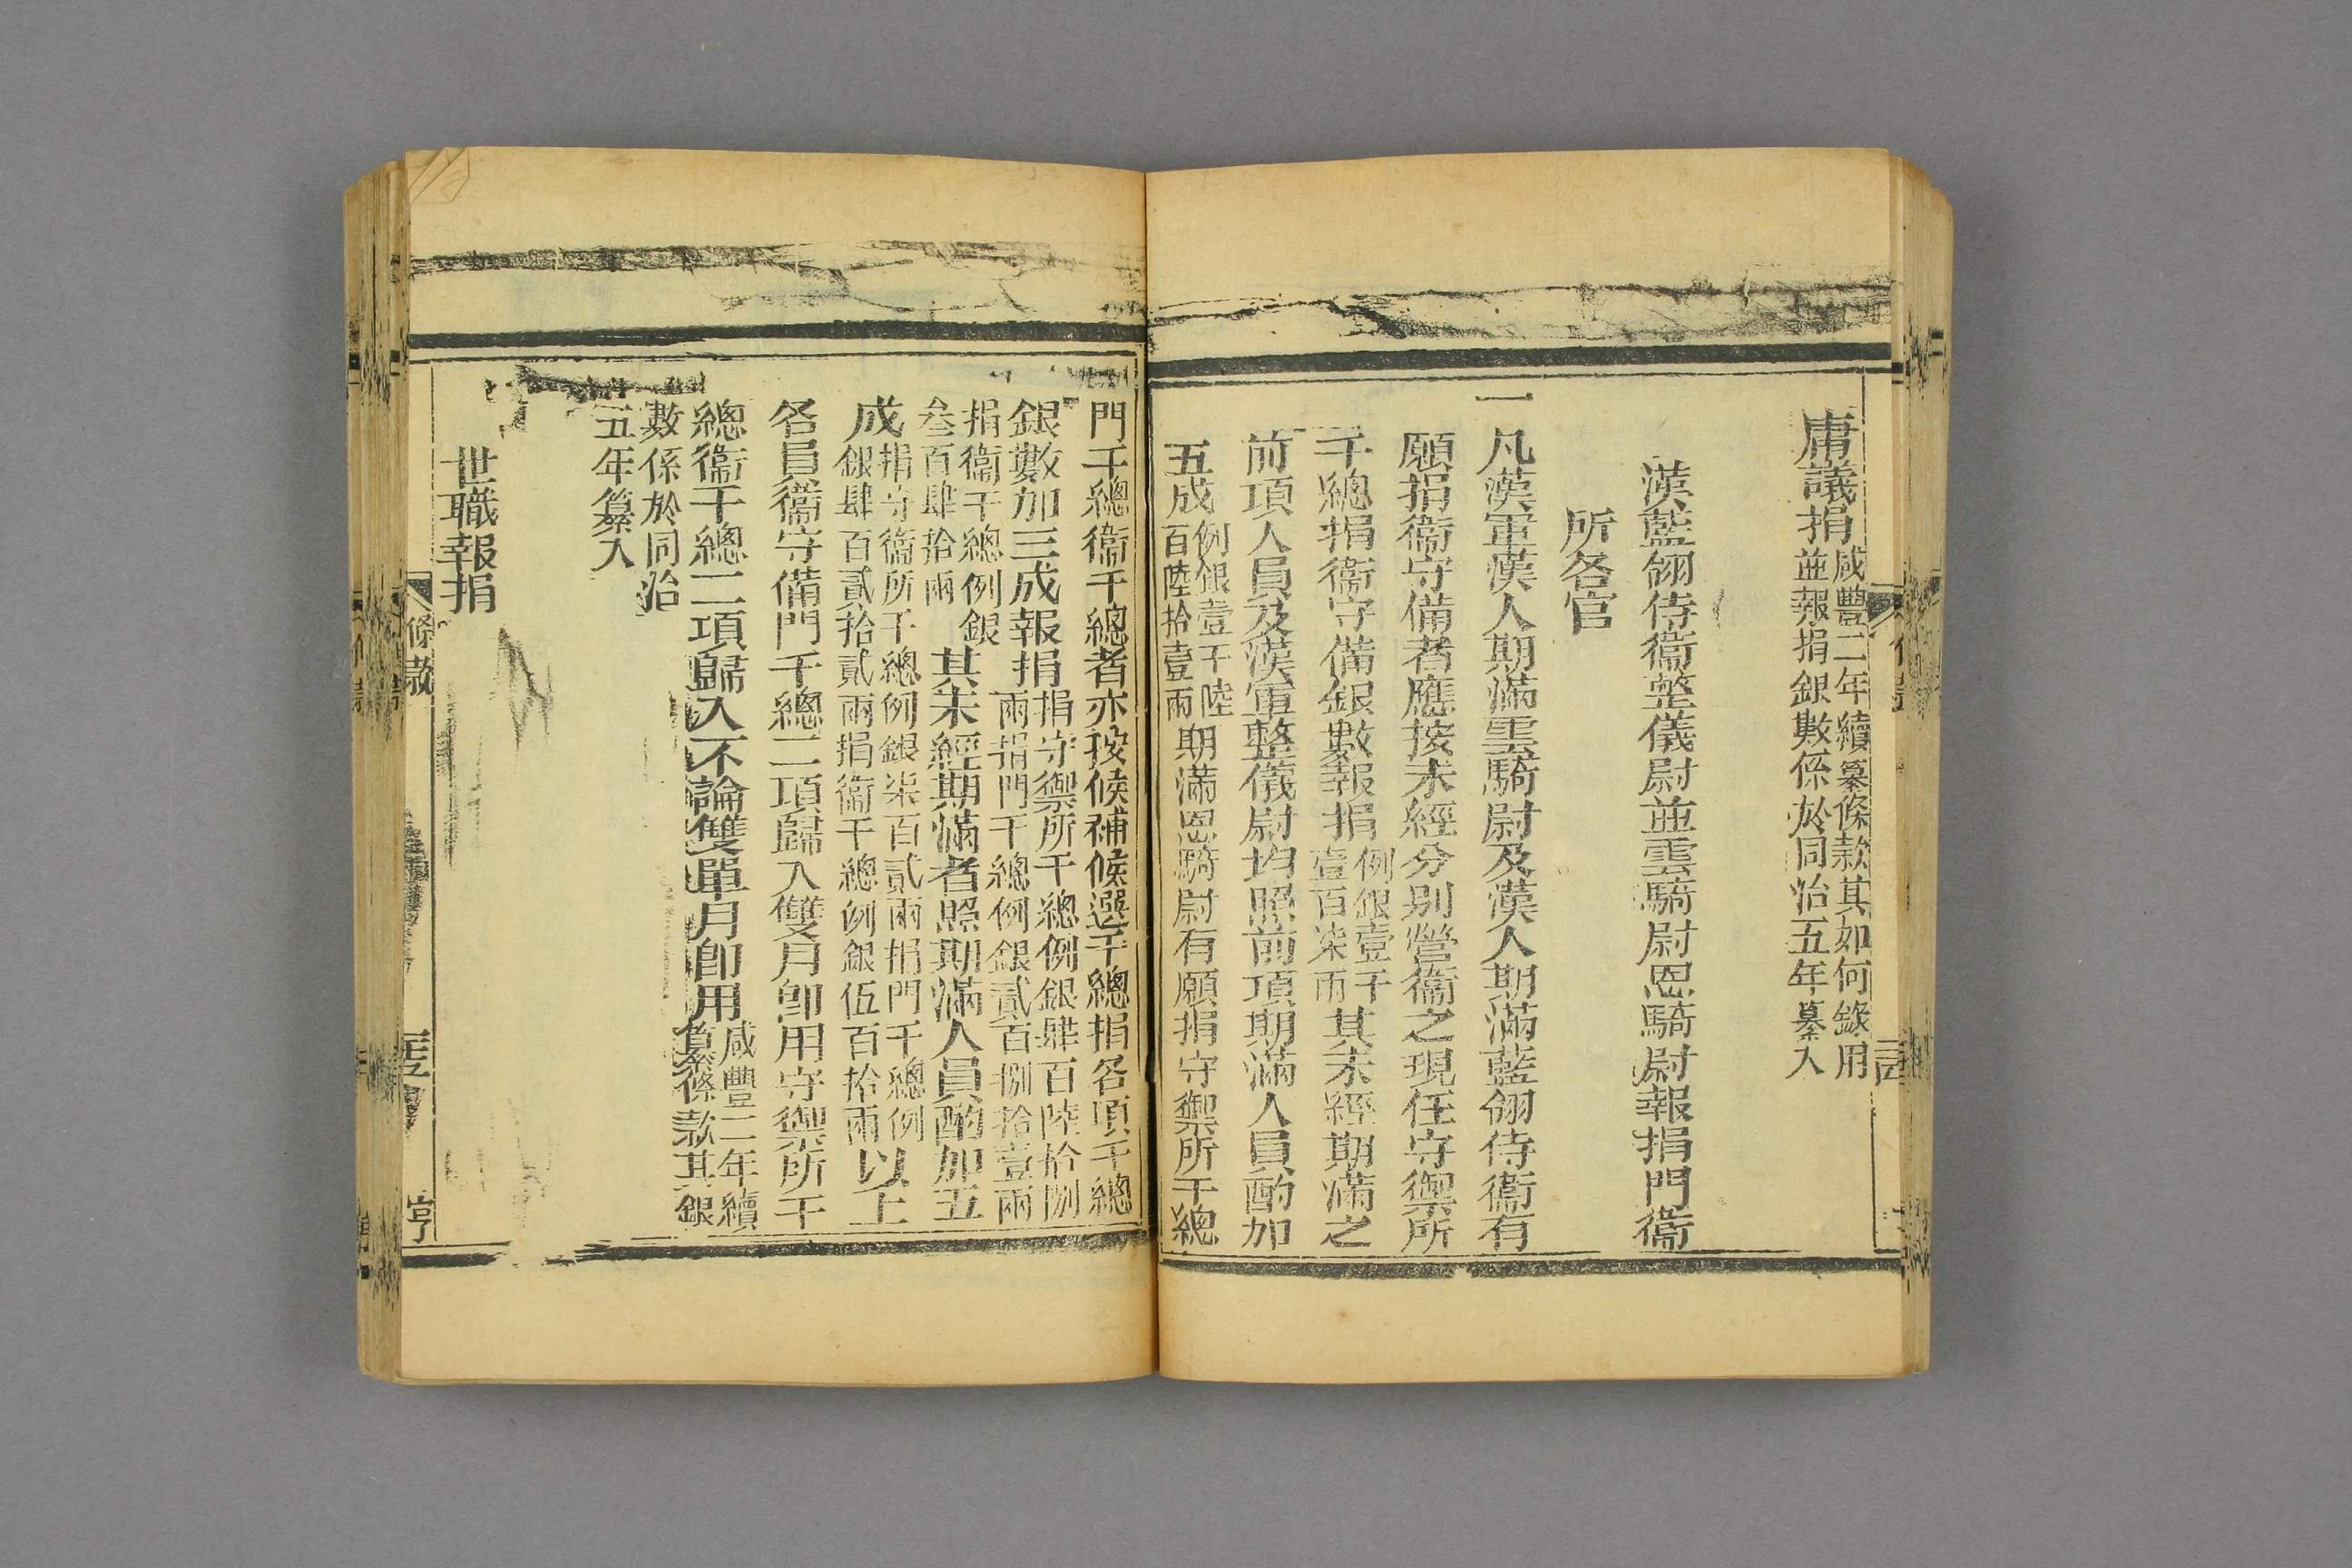 庸議捐咸豐二年續纂條款其如何錄用
並報捐銀數係於同治五年纂入
漢藍翎侍衞整儀尉並雲騎尉恩騎尉報捐門衞
所各官
一凡漢軍漢人期滿雲騎尉及漢人期滿藍翎侍衞有
願捐衞守備者應按未經分別營衞之現任守禦所
千總捐衞守備銀數報捐例銀壹千壹百柒兩其未經期滿之
前項人員及漢軍整儀尉均照前項期滿人員酌加
五成例銀壹千陸百陸拾壹兩期滿恩騎尉有願捐守禦所千總
門千總衞千總者亦按候補候選千總捐各項千總
銀數加三成報捐捐守禦所千總例銀肆百陸拾捌兩捐門千總例銀貳百捌拾壹兩
捐衞千總例銀叁百肆拾兩其未經期滿者照期滿人員酌加五
成捐守禦所千總例銀柒百貳兩捐門千總例銀肆百貳拾貳兩捐衞千總例銀伍百拾兩以上
各員衞守備門千總二項歸入雙月卽用守禦所千
總衞千總二項歸入不論雙單月卽用咸豐二年續纂條款其銀
數係於同治
五年纂入
世職報捐
條款
亨